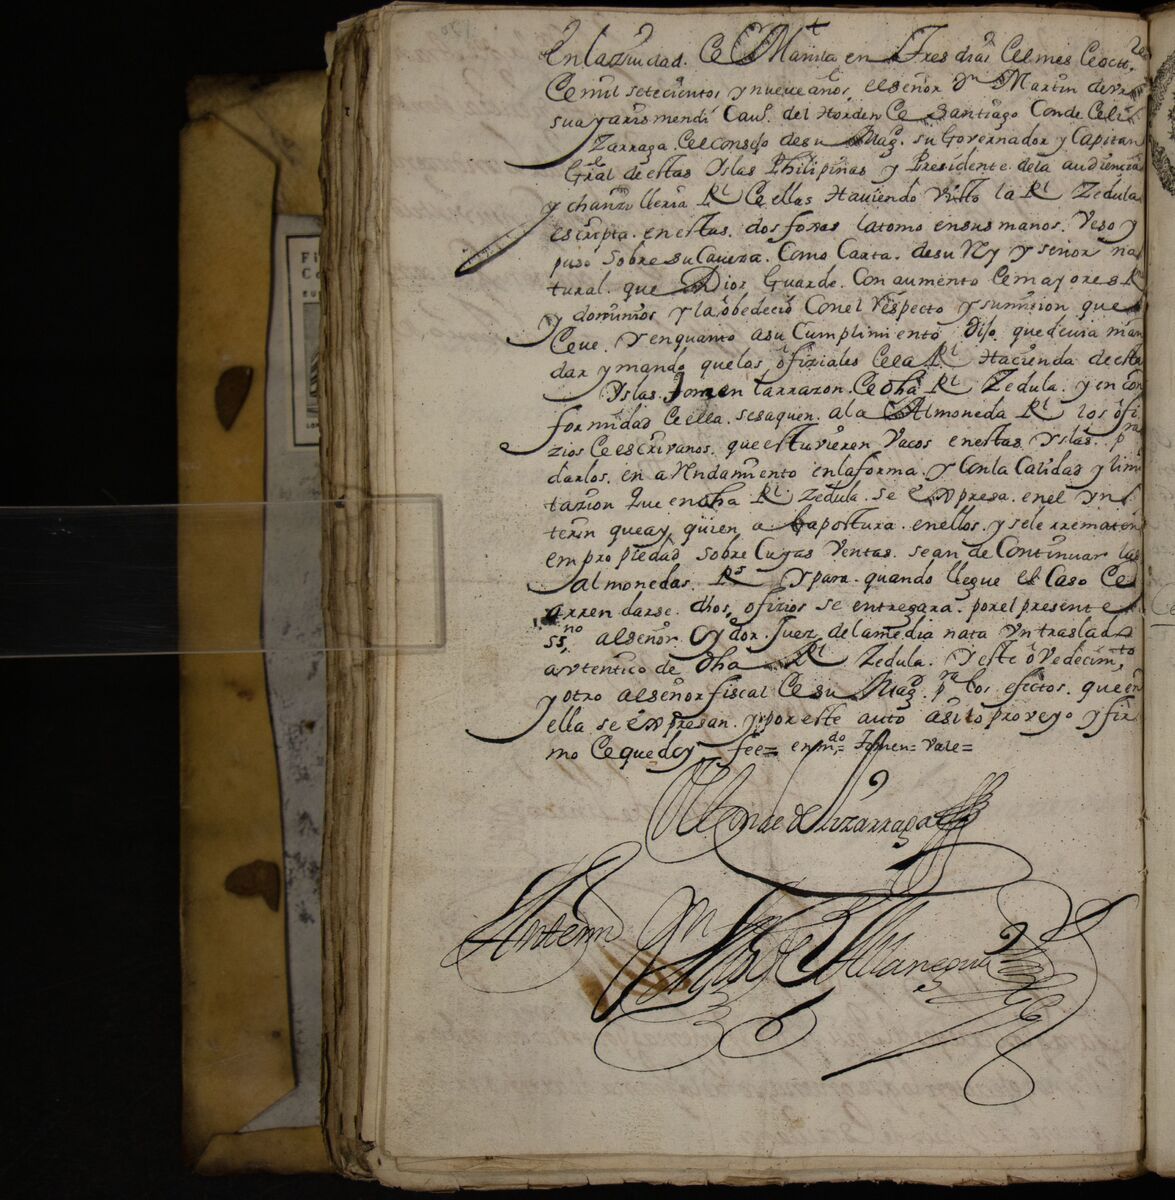 En la Ziudad. de Manila en Tres dias del mes de octu.re
de mil setecientos y nueve años, el señor Dn Martin de vr
sua y arismendi Caull. del Horden de Santiago Conde de Li
zarraga. del consejo de su Magd. su Governador y Capitan
Gral de estas Yslas Philipinas y Presidente de la audiencia
y chanzilleria Rl de ellas Haviendo visto la Rl Zedula
escripta. en estas. dos foxas la tomo en sus manos. veso y
puso sobre su Caveza. Como Carta. de su Rey y señor na
tural. que Dios Guarde. Con aumento de mayores Rs
y dominios y la obedecio Con el respecto y sumision que
deve. Y en quanto a su Cumplimiento Dijo que devia man
dar y mando que los ofiziales de la Rl Hazienda de estas
Yslas tomen la rrazon. de dha Rl Zedula. y en con
formidad de ella. se saquen. a la Almoneda Rl los ofi
zios de escrivanos. que estuvieren vacos en estas Yslas. pra
darlos. en arrendamiento en la forma. y Con la Calidad y limi
tazion Que en dha Rl Zedula. se expresa. en el yn
terin que ay quien aga postura. en ellos. y se le rrematen
em propiedad sobre Cuyas ventas. se an de Continuar las
almonedas. Rs Y para. quando llegue el Caso de
arrendarse. dhos, ofizios se entregara. por el presente
ssno, al señor. Oydor. Juez de la media nata Yn traslado
avtentico de dha Rl Zedula. Y este ovedecimto,
y otro al señor fiscal de su Magd. pa los efectos. que en
ella se expresan. y por este auto asi lo proveyo y fir
mo de que doy fee= enmdo,= Tomen= vale=
El Conde de Lizarraga
Ante mi